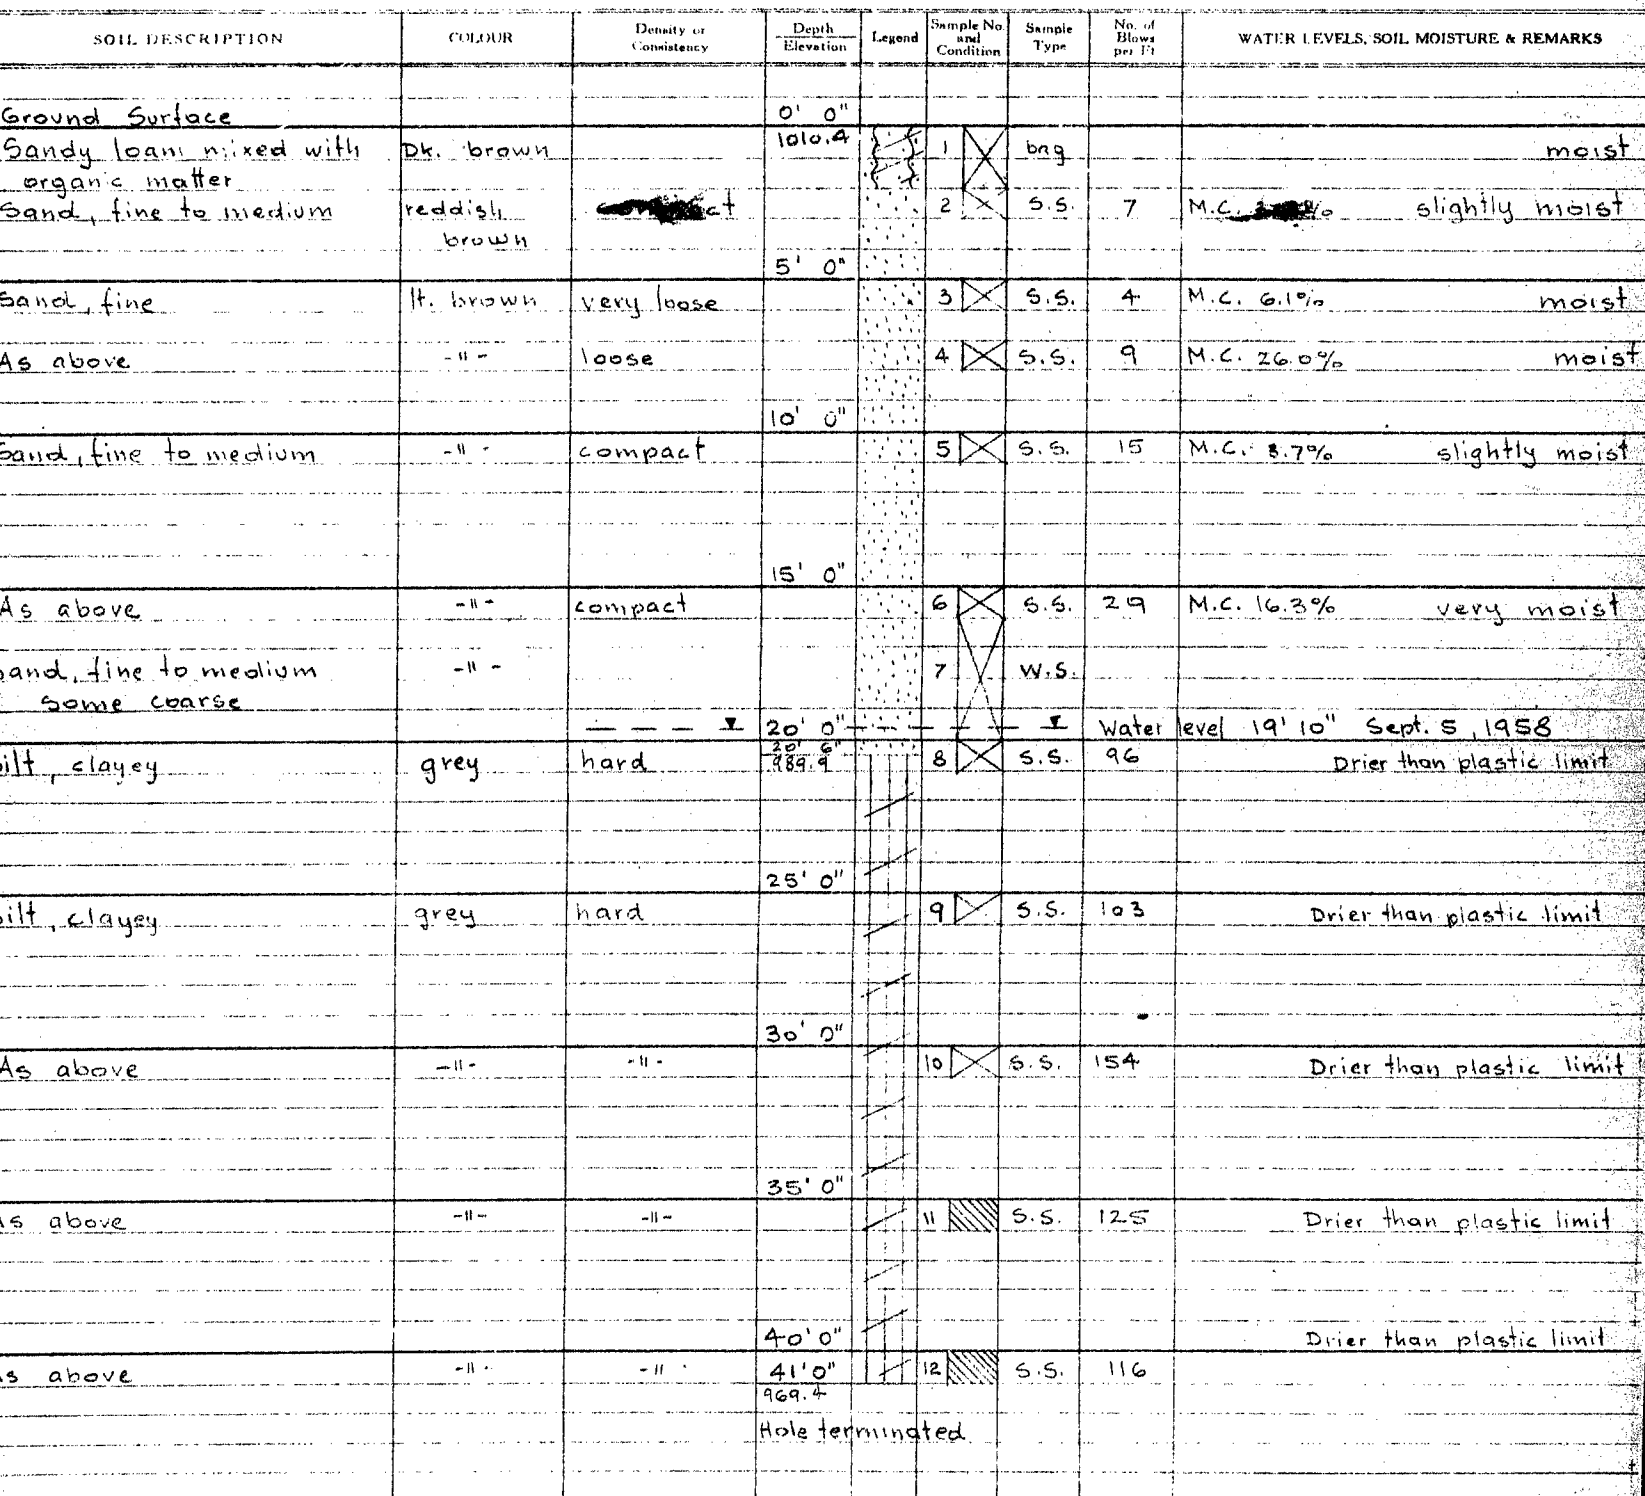 SOIL DESCRIPTION COLOUR Density or Consistency Depth Elevation Legend Sample No. and Condition Sample Type No. of Blows per Ft WATER LEVELS, SOIL MOISTURE & REMARKS
Ground Surface 0' 0"
Sandy loam mixed with Dk. brown 1010.4 1 bag moist
organic matter
Sand, fine to medium reddish 2 S.S. 7 M.C. slightly moist
brown
5' 0"
Sand, fine lt. brown very loose 3 S.S. 4 M.C. 6.1% moist
As above -"- loose 4 S.S. 9 M.C. 26.0% moist
10' 0"
Sand, fine to medium -"- compact 5 S.S. 15 M.C. 3.7% slightly moist
15' 0"
As above -"- compact 6 S.S. 29 M.C. 16.3% very moist
Sand, fine to medium -"- 7 W.S.
some coarse
20' 0" Water level 19' 10" Sept. 5, 1958
20' 6"
ilt, clayey grey hard 989.9 8 S.S. 96 Drier than plastic limit
25' 0"
ilt, clayey grey hard 9 S.S. 103 Drier than plastic limit
30' 0"
As above -"- -"- 10 S.S. 154 Drier than plastic limit
35' 0"
As above -"- -"- 11 S.S. 125 Drier than plastic limit
40' 0" Drier than plastic limit
s above -"- -"- 41' 0" 12 S.S. 116
969.4
Hole terminated